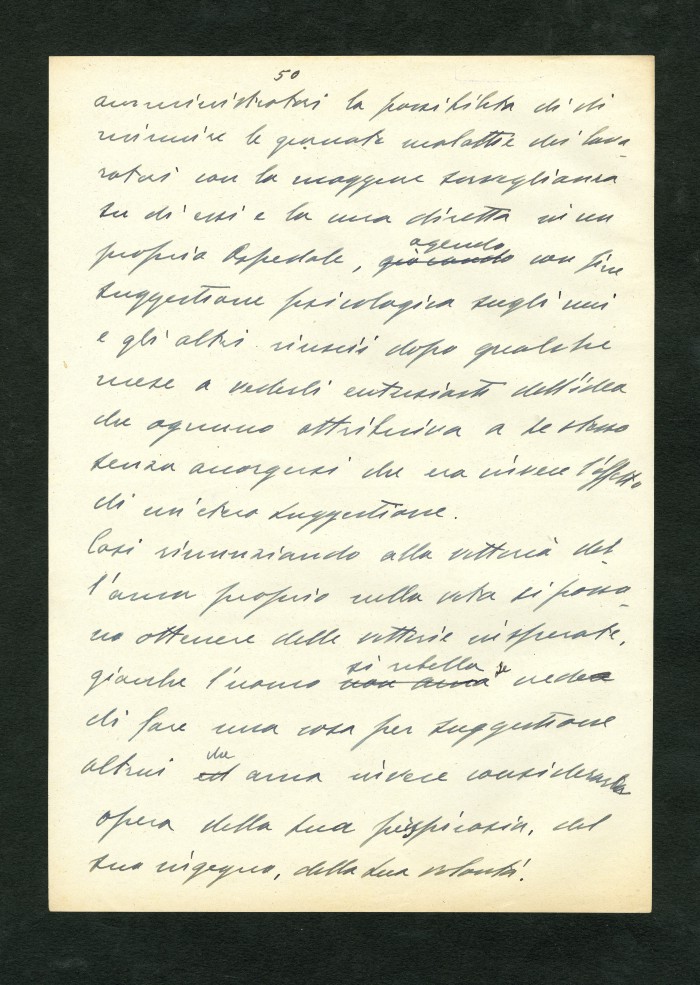 50
amministratori la possibilità di di
minuire le giornate malattie dei lavo
ratori con la maggiore sorveglianza
su di essi e la cura diretta in un
proprio Ospedale, giocando agendo con fine
suggestione psicologica sugli uni
e gli altri riuscii dopo qualche
mese a vederli entusiasti dell'idea
che ognuno attribuiva a se stesso
senza accorgersi che era invece l'effetto
di un'etero suggestione.
Così rinunziando alla vittoria del
l'amor proprio nella vita si posso
no ottenere delle vittorie insperate,
giacche l'uomo non ama si ribella se vede
di fare una cosa per suggestione
altrui ed che ama invece considerarla
opera della sua perspicacia, del
suo ingegno, della sua volontà.